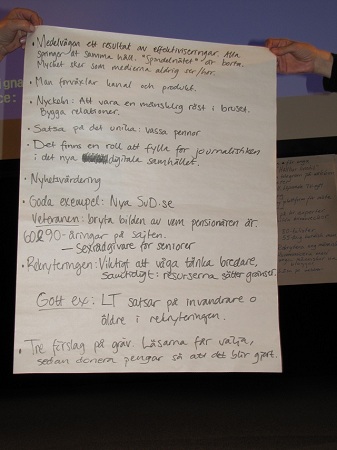 • Medelvägen ett resultat av effektiviseringar. Alla
springer åt samma håll. "Spindelnätet" är borta.
Mycket sker som medierna aldrig ser/hör.
• Man förväxlar kanal och produkt.
• Nyckeln: Att vara en mänsklig röst i bruset.
Bygga relationer.
• Satsa på det unika: vassa pennor
• Det finns en roll att fylla för journalistiken
i det nya digitala samhället.
• Nyhetsvärdering
• Goda exempel: Nya SvD.se
Veteranen: bryta bilden av vem pensionären är.
60-90-åringar på sajten.
— Sexrådgivare för seniorer
• Rekryteringen: Viktigt att våga tänka bredare,
samtidigt: resurserna sätter gränser.
Gott ex: LT satsar på invandrare o
äldre i rekryteringen.
• Tre förslag på gräv. Läsarna får välja,
sedan donera pengar så att det blir gjort.